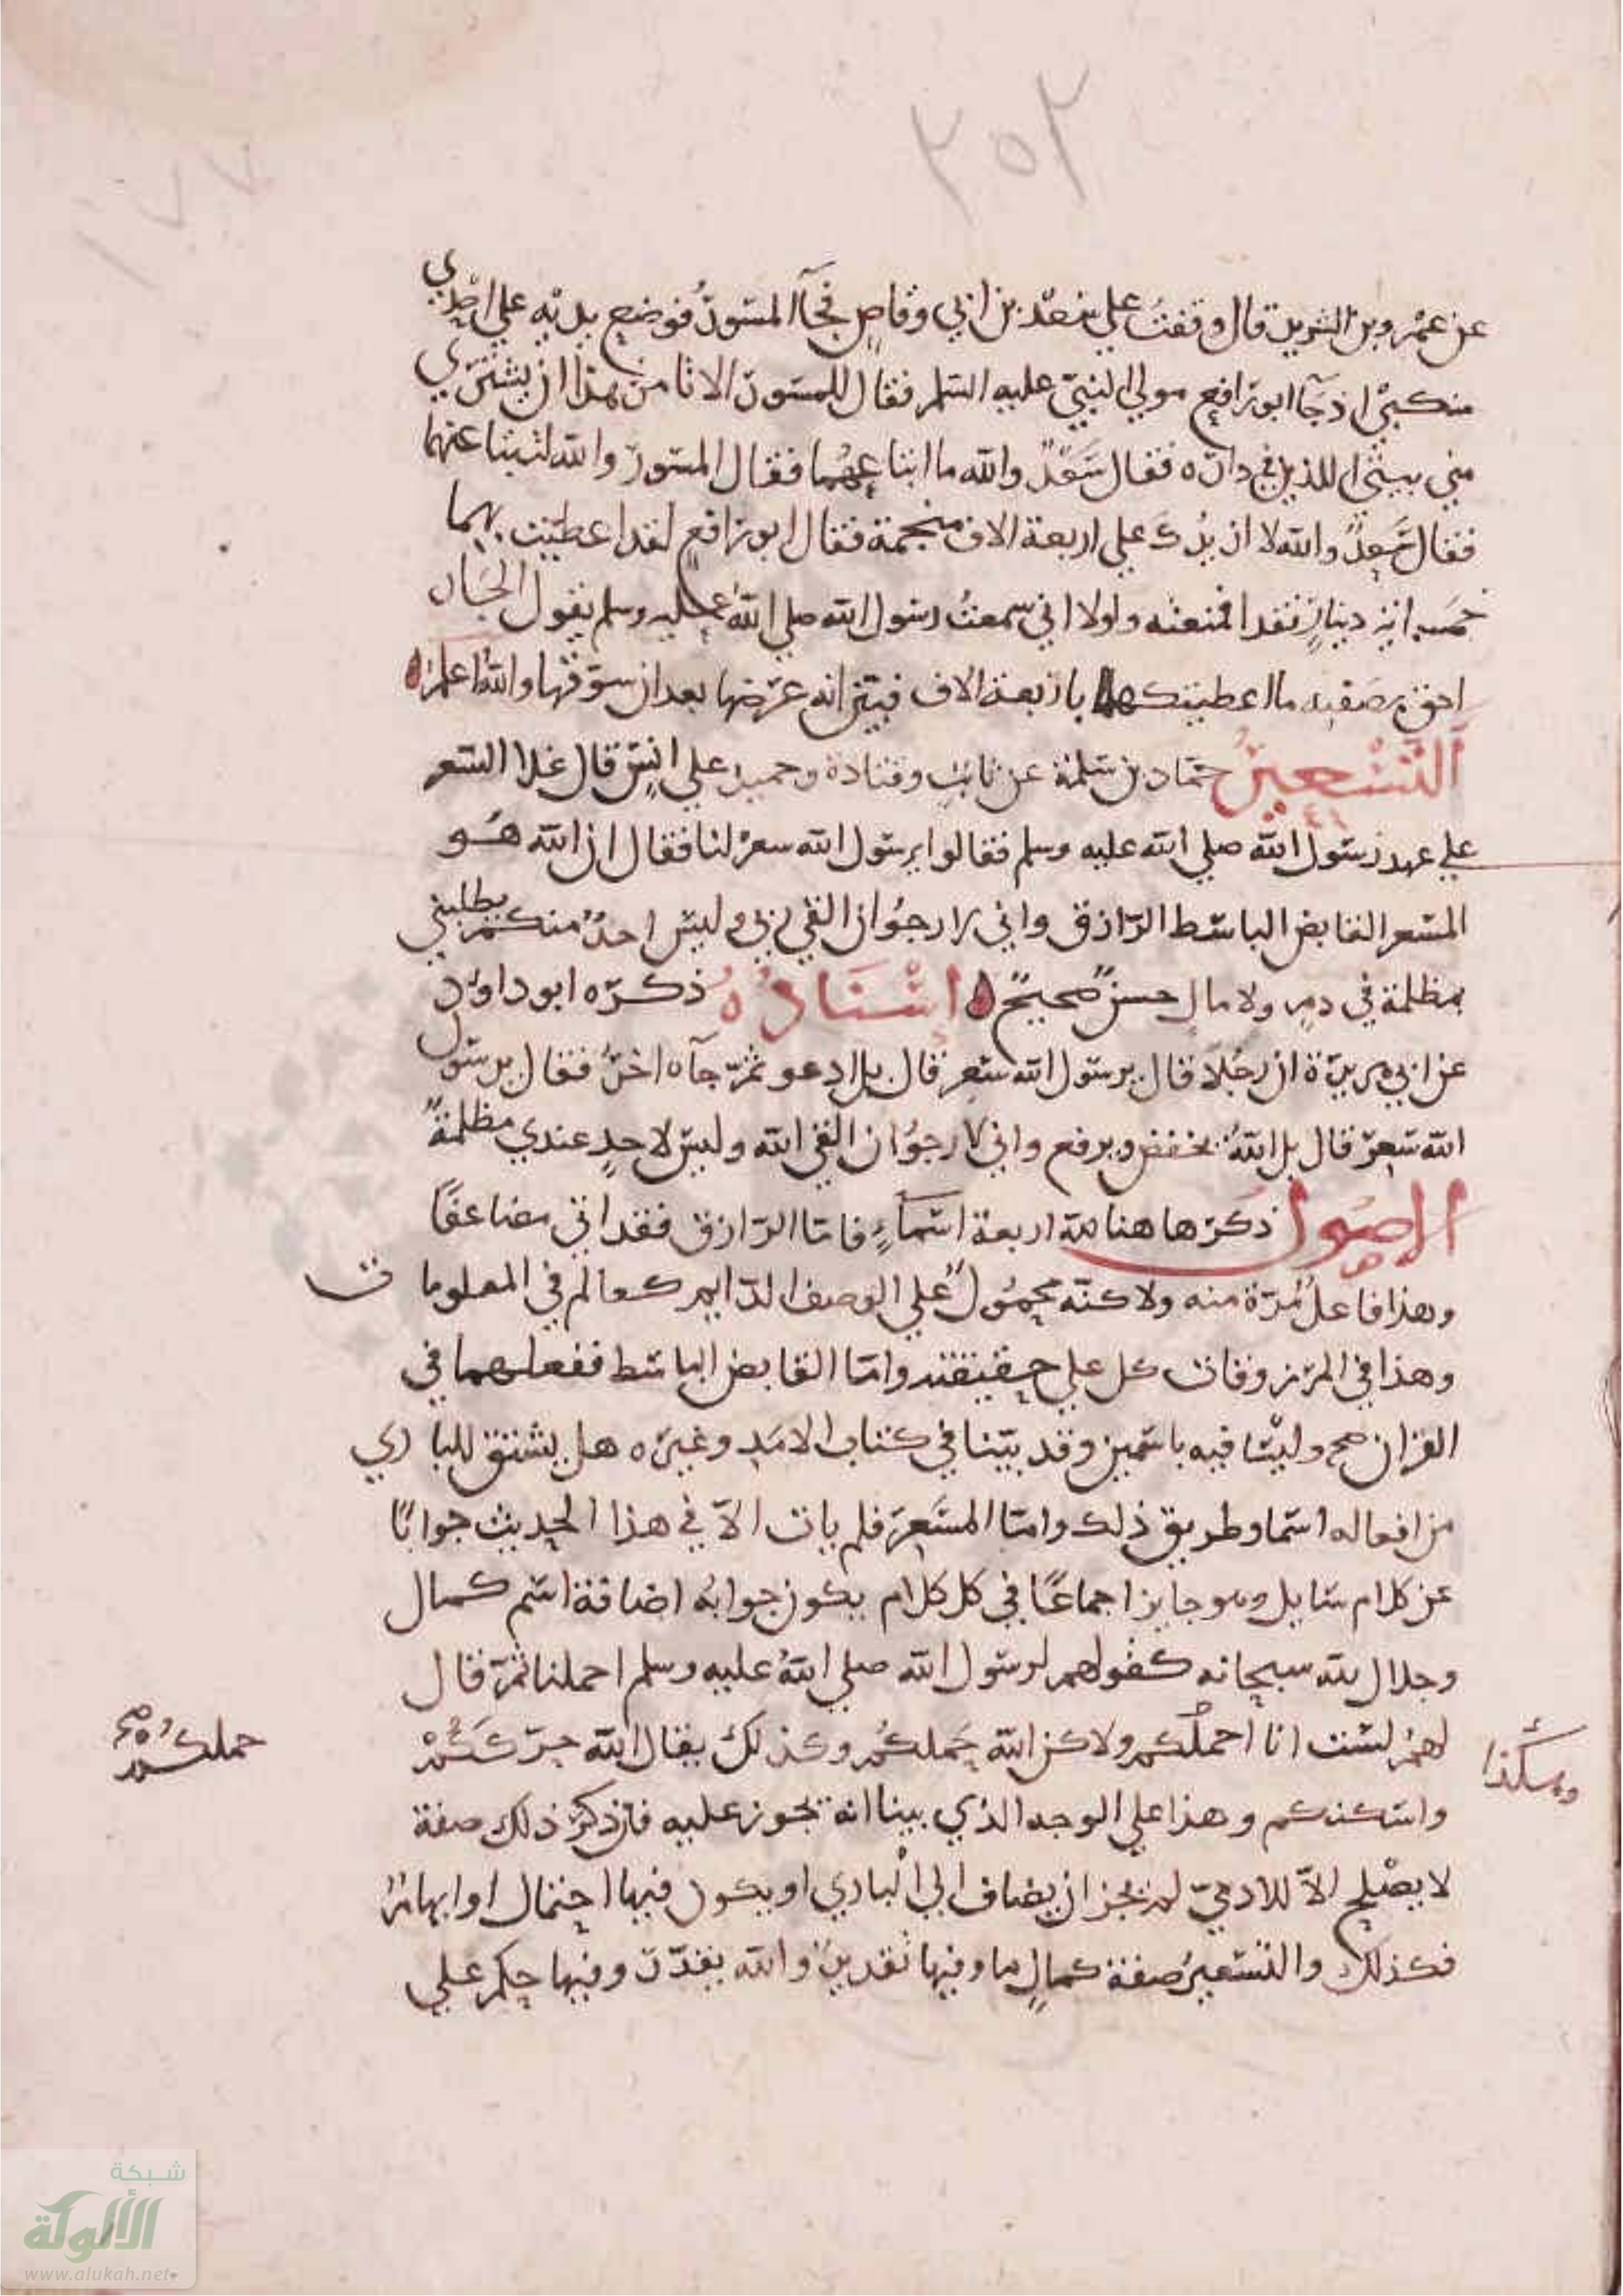 ٢٥٢
١٧٧
عن عمرو بن الشريد قال وقفت علي سعد بن ابي وقاص فجآ المسور فوضع يديه علي احدي
منكبيّ اذ جآ ابو رافع مولي النبيّ عليه السلم فقال للمسور الا تامر هذا ان يشتري
مني بيتيّ اللذين في داره فقال سَعْدٌ والله ما ابتاعهما فقال المسور والله لتبتاعنهما
فقال سَعدٌ والله لا ازيدك علي اربعة الاف منجمة فقال ابو رافع لقد اعطيت بهما
خمسماية دينارٍ نقدا فمنعته ولولا اني سمعتُ رسول الله صلي اللهُ عليه وسلم يقول الجار
احق بصقبه ما اعطيتكها باربعة الاف فبيّن انه عرضها بعد ان سوّقها والله اعلم ه
التَّسْعِيرُ حمّاد بن سلمة عن ثابتٍ وقتادة وحميد علي انسٍ قال غلا السعر
علي عهد رسول الله صلي الله عليه وسلم فقالوا يرسول الله سعرْ لنا فقال ان الله هُو
المسعر القابض الباسط الرّازق واني لارجوُا ان القي ربي وليس احدٌ منكم يطلبني
بمظلمة في دمٍ ولا مالٍ حسنٌ صحيحٌ ه إسْنَادُهُ ذكره ابو داود
عن ابي هريرة ان رجُلًا قال يرسول الله سَعِر قال بل ادعو ثمّ جآه اخرُ فقال يرسول
الله سَعِرّ قال بل اللهُ يخفض ويرفع واني لارجوُا ان القي الله وليس لاحدٍ عندي مظلمةٌ
الاصُول ذكر هاهنا لله اربعة اسمآءٍ فاما الرّازق فقد اتي مضاعفًا
وهذا فاعلٌ مُرّة منه ولاكنّه محمُولٌ علي الوصف الدّايم كعالم في المعلومات
وهذا في المرزوقات كل علي حقيقته وامّا القابض الباسط ففعلهما في
القران صح وليسا فيه باسمين وقد بيّنا في كتاب الامَد وغيره هل يشتق للباري
من افعاله اسما وطريق ذلك وامّا المسَعِر فلم يات الاّ في هذا الحديث جوابًا
عن كلام سايل وهو جايز اجماعًا في كل كلام يكون جوابُه اضافة اسم كمال
وجلال لله سبحانه كقولهم لرسول الله صلي اللهُ عليه وسلم احملنا ثمّ قال
لهمُ لسْت انا احملُكم ولاكن الله حَملكُم وكذلكَ يقال الله حرّككُمْ
وهكذا
حملكُمْ صح
واسكنكم وهذا علي الوجه الذي بينا انه يجوز عليه فان ذكرَ ذلك صفة
لا يصْلح الاّ للادميّ لم يجز ان يضاف الي الباري او يكون فيها احتمال او ابهام
فكذلك والتسعيرُ صفة كمالٍ ما وفيها تقديرٌ والله يقدّر وفيها حكم علي
شبكة
الألوكة
www.alukah.net